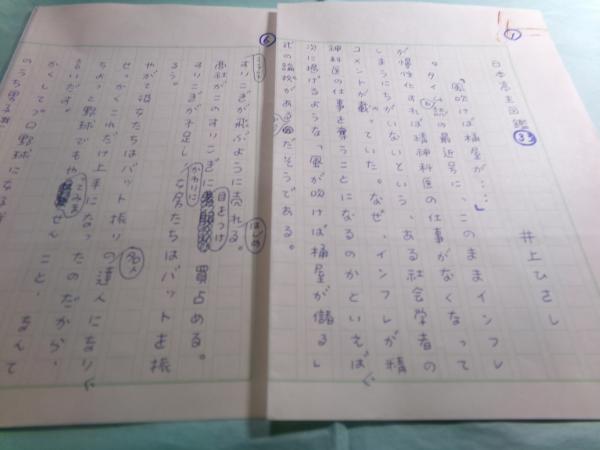 ①
日本亭主図鑑 ㉝
井上ひさし
「風吹けば桶屋が……」
タイム誌の最近号に、このままインフレ
が慢性化すれば精神科医の仕事がなくなって
しまうにちがいないという、ある社会学者の
コメントが載っていた。なぜ、インフレが精
神科医の仕事を奪うことになるのかといえば、
次に掲げるような「風が吹けば桶屋が儲る」
式の論検がある
だそうである。
⑥
すりこぎが飛ぶように売れる。
商社がこのすりこぎに目をつけ買占める。
すりこぎが不足し、
かわりに
女たちはバットを振
るう。
はじめ
やがて彼女たちはバット振りの名人になり、
せっかくこれだけ上手になったのだから、
ちょっと野球でもや
ること、なんて
るいだす。
かくしてプロ野球になる
のうち男る